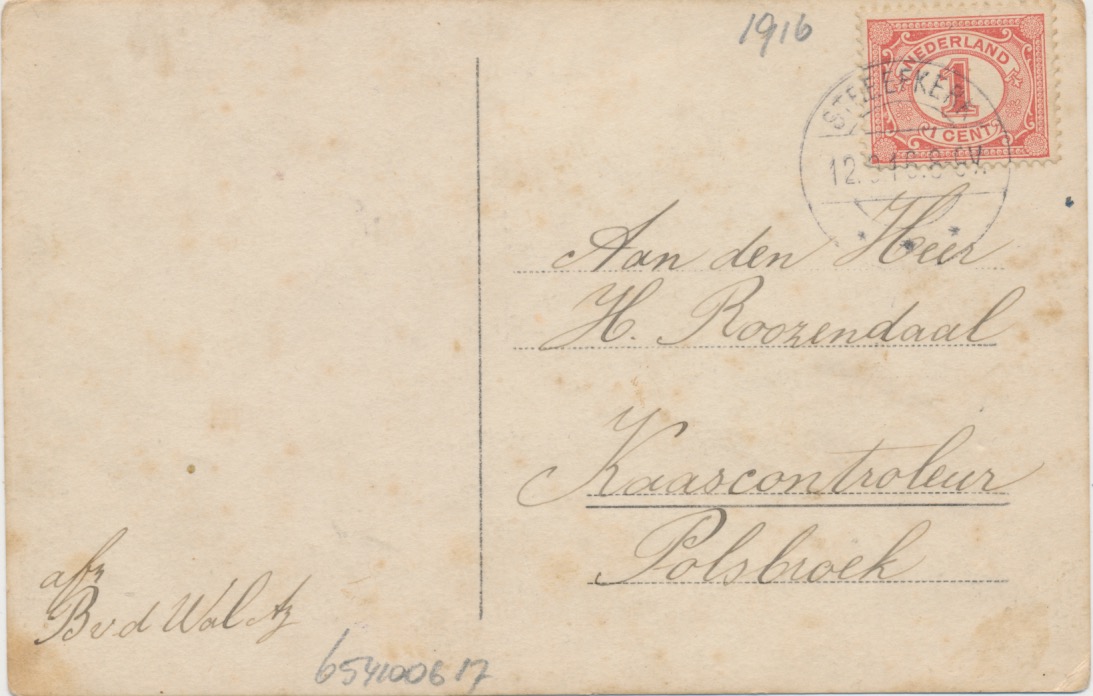 1916
NEDERLAND
1
1 CENT
STREEFKERK
Aan den Heer
H. Roozendaal
Kaascontroleur
Polsbroek
afz
B v d Wal Az
654100617